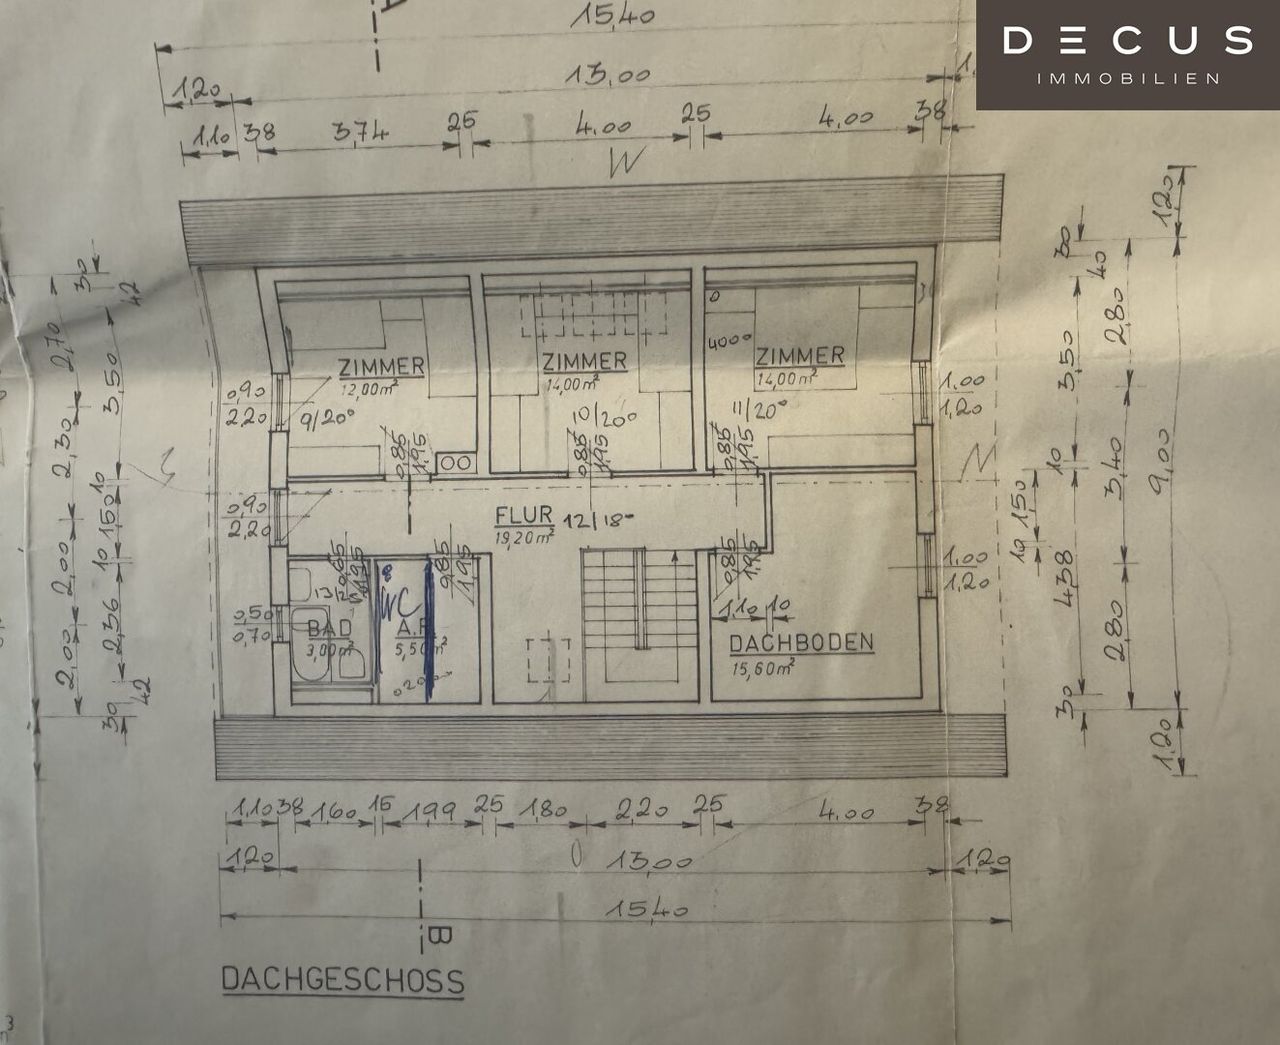 A
15,40
DECUS
IMMOBILIEN
1,20
13,00
1,10 38 3,74 25 4,00 25 4,00 38
W
1,20
30
40
30
42
2,70
3,50
2,80
3,50
ZIMMER
12,00m²
ZIMMER
14,00m²
ZIMMER
14,00m²
4000
0,90
2,20
9/20°
10/20°
11/20°
1,00
1,20
0,85
1,95
0,85
1,95
0,85
1,95
2,30
10
3,40
9,00
10
N
0,90
2,20
FLUR 12/18°
19,20m²
1,50
1,50
10
10
2,00
0,65
1,95
0,85
1,95
0,85
1,95
1,00
1,20
WC
0,50
0,70
BAD
3,00m²
A.R.
5,50m²
1,10 10
DACHBODEN
15,60m²
4,38
2,80
2,36
2,00
42
30
30
1,20
1,10 38 1,60 15 1,99 25 1,80 2,20 25 4,00 38
1,20 O 13,00 1,20
15,40
B
DACHGESCHOSS